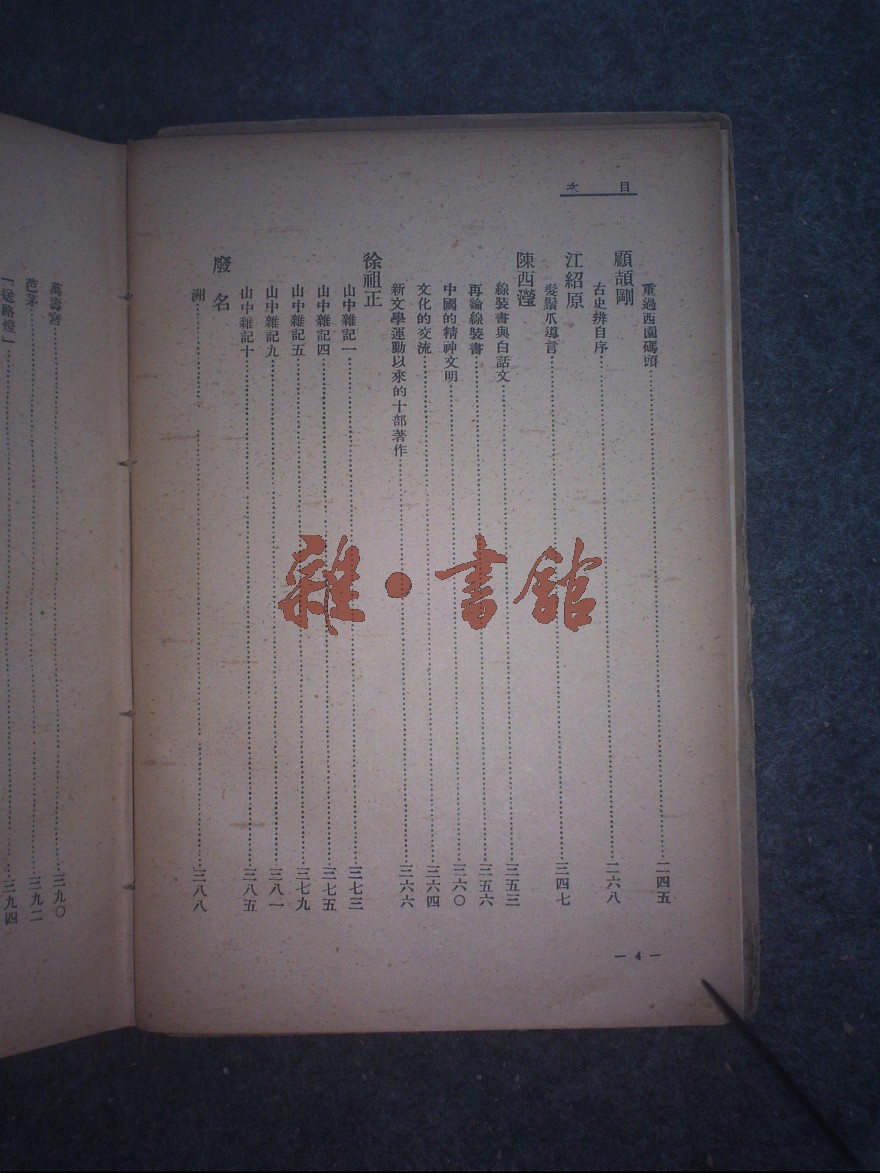 目次
重過西園碼頭……二四五
顧頡剛
古史辨自序……二六八
江紹原
髮鬚爪導言……三四七
陳西瀅
線裝書與白話文……三五三
再論線裝書……三五六
中國的精神文明……三六〇
文化的交流……三六四
新文學運動以來的十部著作……三六六
徐祖正
山中雜記一……三七三
山中雜記四……三七五
山中雜記五……三七九
山中雜記九……三八一
山中雜記十……三八五
廢名
洲……三八八
— 4 —
萬壽宮……三九〇
芭茅……三九二
「送路燈」……三九四
雜·書館